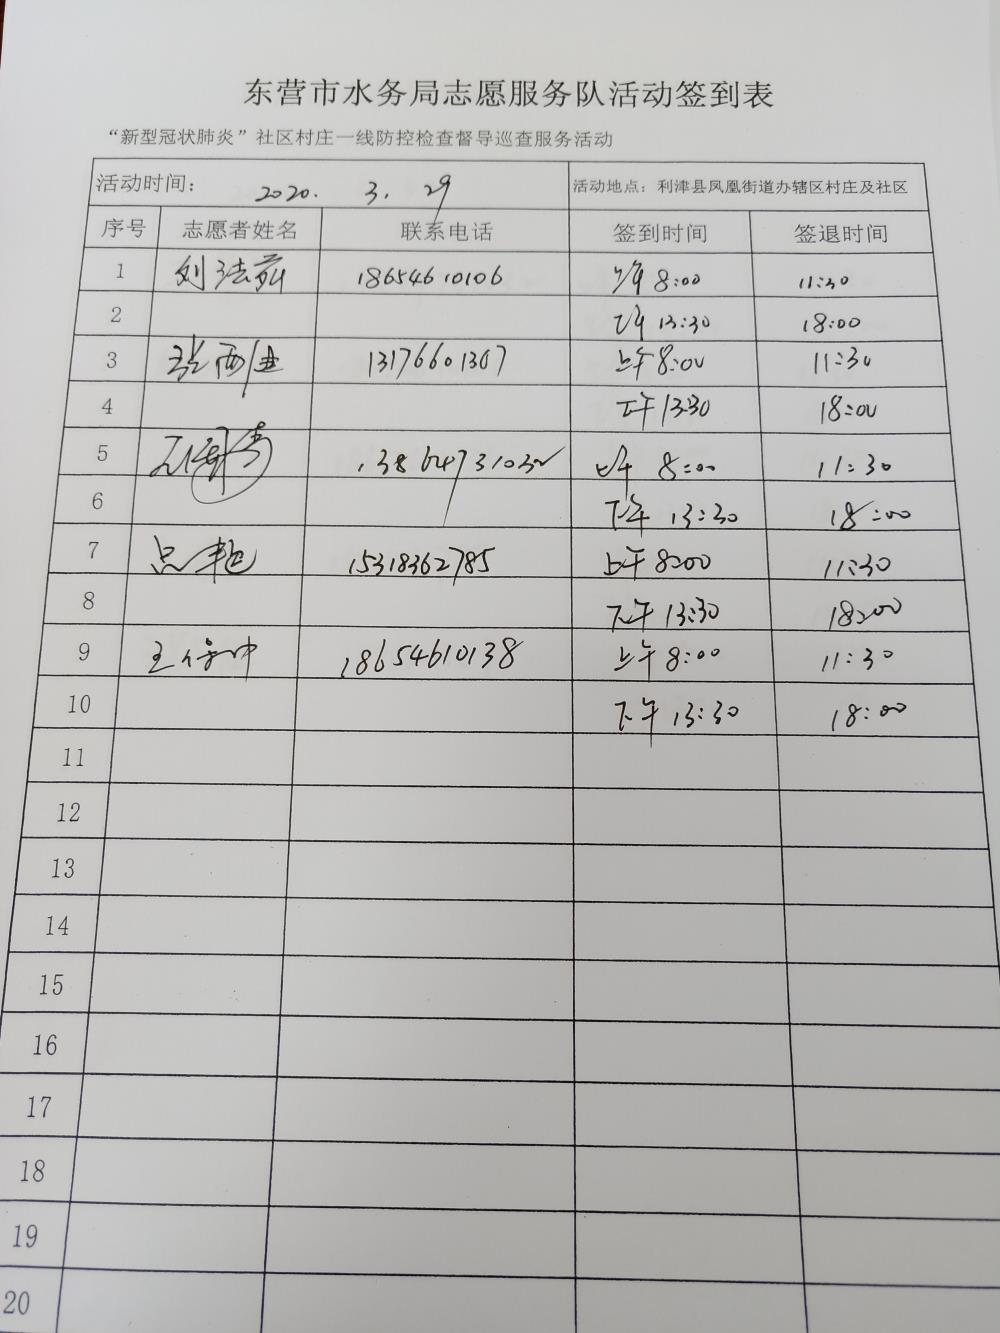 东营市水务局志愿服务队活动签到表
“新型冠状肺炎”社区村庄一线防控检查督导巡查服务活动
活动时间： 2020. 3. 29 活动地点：利津县凤凰街道办辖区村庄及社区
序号 志愿者姓名 联系电话 签到时间 签退时间
1 刘法 18654610106 上午 8:00 11:30
2 下午 13:30 18:00
3 张西 13176601307 上午 8:00 11:30
4 下午 13:30 18:00
5 上午 8:00 11:30
6 下午 13:30 18:00
7 15318362785 上午 8:00 11:30
8 下午 13:30 18:00
9 王 18654610138 上午 8:00 11:30
10 下午 13:30 18:00
11
12
13
14
15
16
17
18
19
20